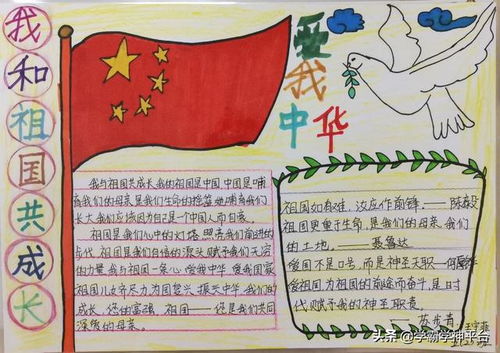 我和祖国共成长
爱我
中华
我与祖国共成长我的祖国是中国,中国是哺
育我们的母亲,是我们生命的摇篮她哺育我们
长大我们应该因为自己是一个中国人而自豪。
祖国是我们心中的灯塔照亮我们前进的
祖国是我们自信的源头赋予我们无穷
的力量我与祖国一条心
国儿女齐尽力为国复兴振兴中华我们的
成长
祖国
是我们共同
深爱的母亲。
祖国如有难,汝应作前锋。——陈毅
祖国更重于生命,是我们的母亲,我们
的土地。——聂鲁达
爱国不是口号,而是神圣天职—
爱祖国为祖国的前途而奋斗,是时
代赋予我的神圣职责。
——苏步青
头条@学霸学神平台